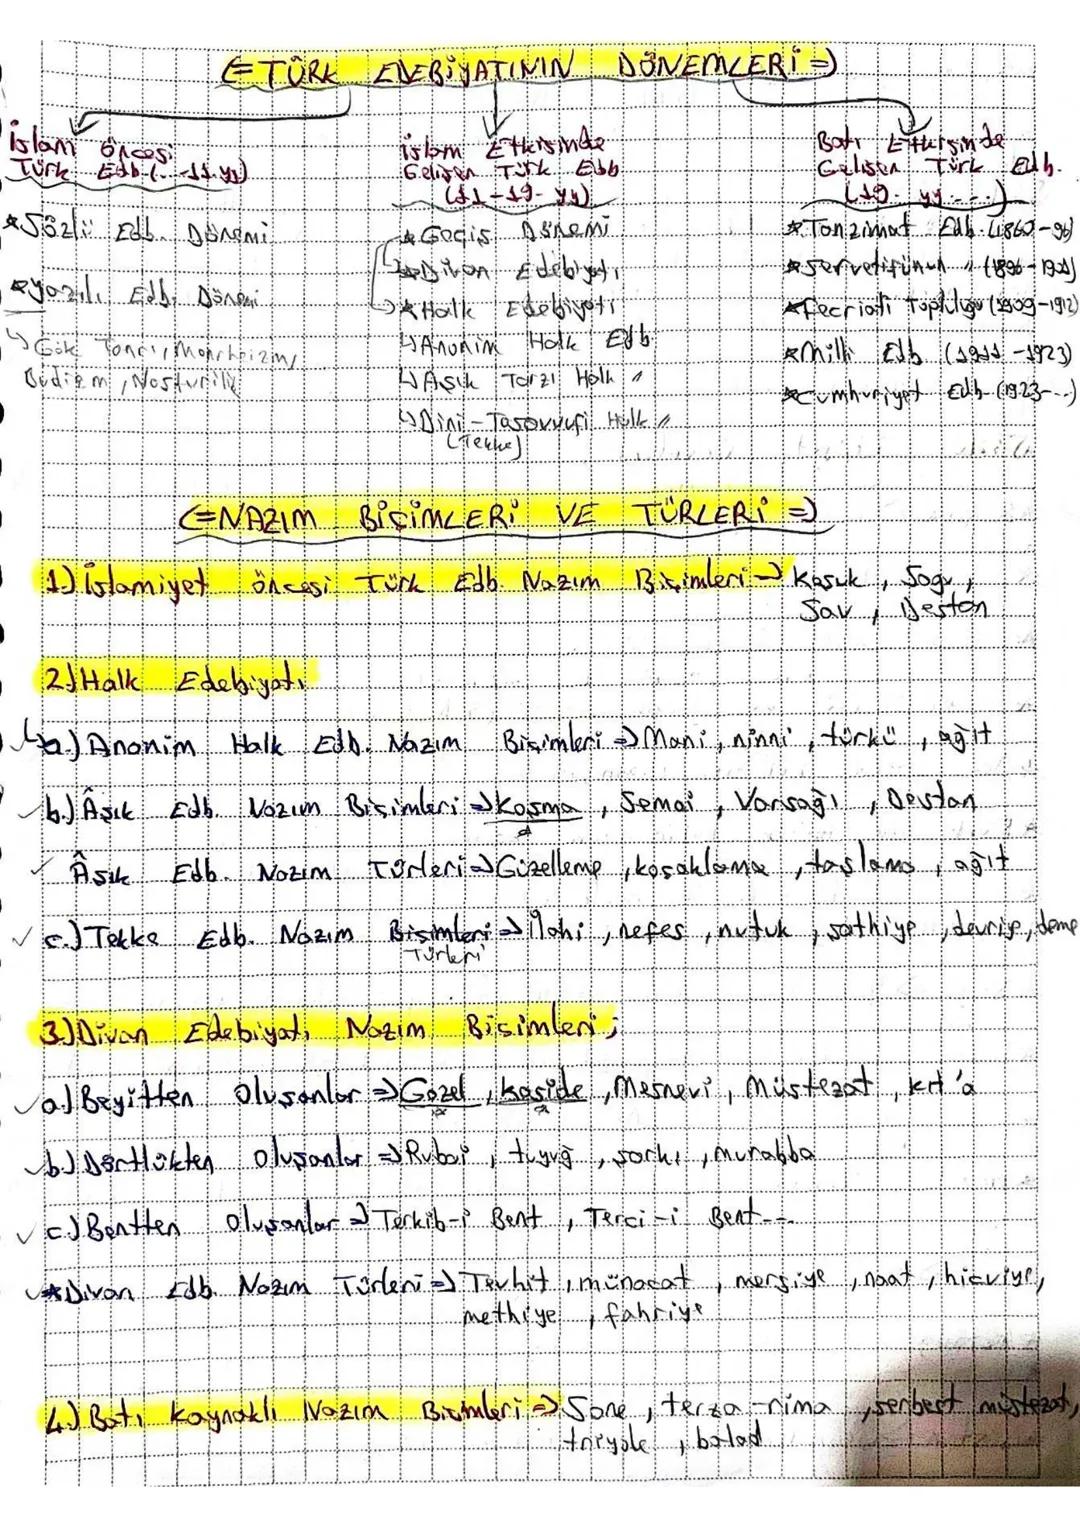 (= TÜRK EDEBİYATININ DÖNEMLERİ =)
İslam öncesi
Türk Edb (...-11.yy)
*Sözlü Edb. Dönemi
*Yazılı Edb. Dönemi
↳ Gök Tanrı, Monoteizim,
Budizm
İslam Etkisinde
Gelişen Türk Edb
(11-19. yy)
*Geçiş Dönemi
*Divan Edebiyatı
*Halk Edebiyatı
↳ Anonim Halk Edb
↳ Aşık Tarzı Halk "
↳ Dini-Tasavvufi Halk "
(Tekke)
Batı Etkisinde
Gelişen Türk Edb.
(19. yy ...)
*Tanzimat Edb. (1860-96)
*Servetifünun " (1896-1901)
*Fecriati Topluluğu (1909-1912)
*Milli Edb (1911-1923)
*Cumhuriyet Edb (1923-...)
(= NAZIM BİÇİMLERİ VE TÜRLERİ =)
1) İslamiyet öncesi Türk Edb. Nazım Biçimleri → Koşuk, Sagu,
Sav, Destan
2) Halk Edebiyatı
↳ a.) Anonim Halk Edb. Nazım Biçimleri ⇒ Mani, ninni, türkü, ağıt
b.) Âşık Edb. Nazım Biçimleri ⇒ Koşma, Semai, Varsağı, Destan
✓ Âşık Edb. Nazım Türleri ⇒ Güzelleme, koçaklama, taşlama, ağıt
✓ c.) Tekke Edb. Nazım Biçimleri ⇒ İlahi, nefes, nutuk, şathiye, devriye, deme
Türleri
3.) Divan Edebiyatı Nazım Biçimleri;
✓ a.) Beyitten Oluşanlar ⇒ Gazel, kaside, Mesnevi, Müstezat, kıt'a
✓ b.) Dörtlükten Oluşanlar ⇒ Rubai, tuyuğ, şarkı, murabba
✓ c.) Bentten Oluşanlar ⇒ Terkib-i Bent, Terci-i Bent...
✓ *Divan Edb. Nazım Türleri ⇒ Tevhit, münacat, mersiye, naat, hicviye,
methiye, fahriye
4.) Batı Kaynaklı Nazım Biçimleri ⇒ Sone, terza-rima, serbest müstezat,
triyole, balad